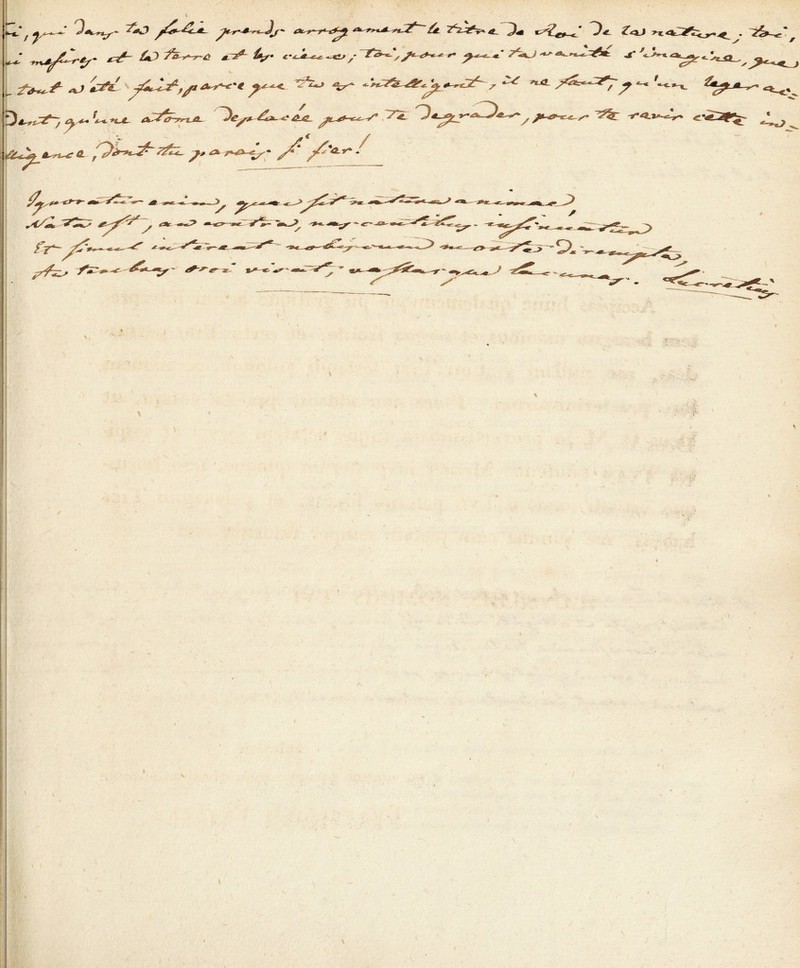 toi, qui dans ta folie prends arrogament le titre de Roi de la nature; toi,
qui mesures et la terre et les cieux; toi, pour qui ta vanité s'imagina, que
le tout a été fait, parce que tu es intelligent, il ne faut, qu'un leger acci-
dent, qu'une atome deplacée pour te degrader, pour te ravir cette intel-
ligence, dont tu parois si fier!
Ignoratur enim, quae sit natura animae,
Nata sit, an contra, nascentibus insinuatur
Et simul intereat nobiscum morte diremta,
An tenebras orci visat, vastasque lacunas. Lucretius